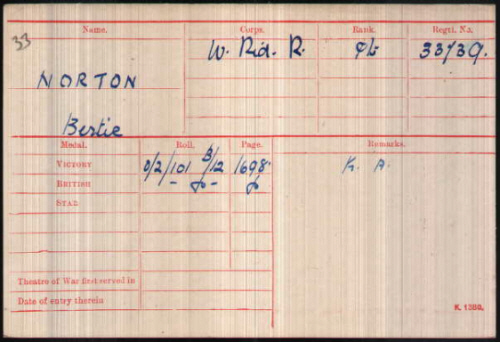 33
Name. Corps. Rank. Regtl. No.
W. Rid. R. Pte 33739.
NORTON
Bertie
Medal. Roll. Page. Remarks.
VICTORY O/2/101 B/12 1698. K. A.
BRITISH - do - do
STAR
Theatre of War first served in
Date of entry therein
K. 1380.